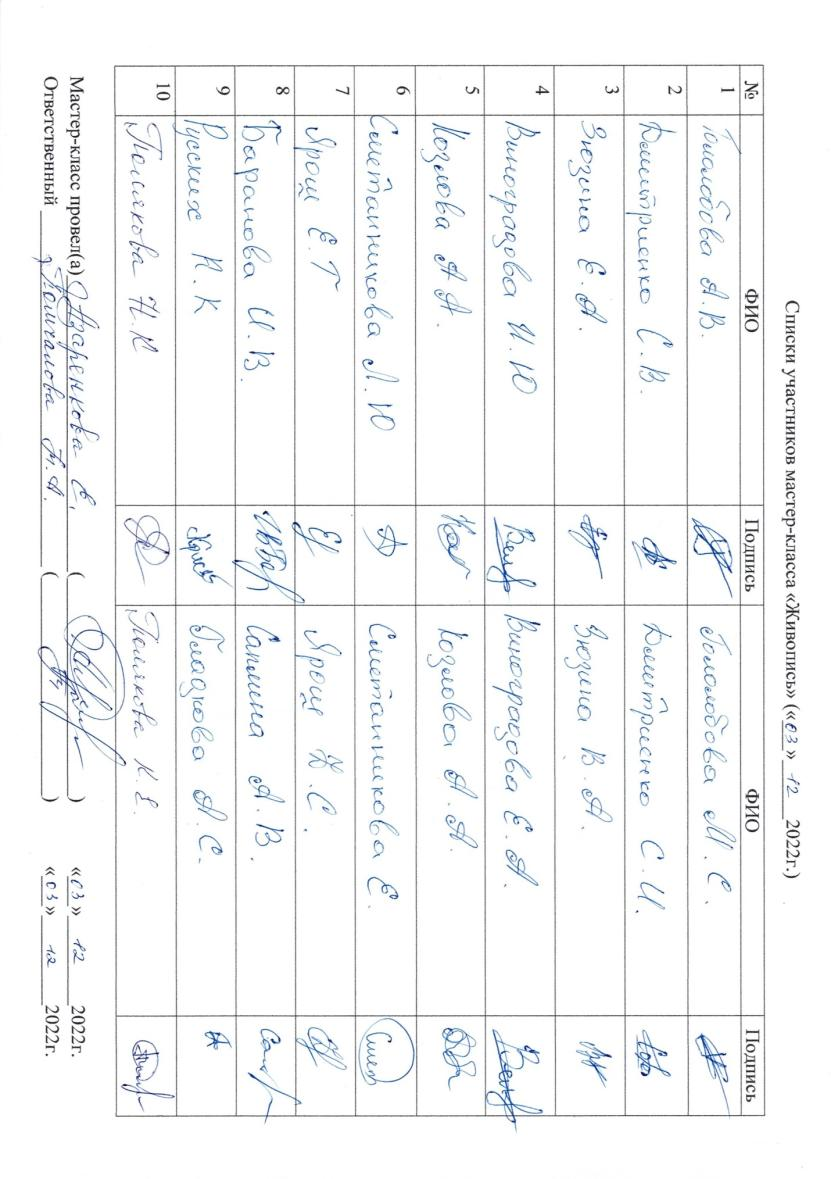 Списки участников мастер-класса «Живопись» («03» 12 2022г.)
№ ФИО Подпись ФИО Подпись
1 Гололобова А.В. Гололобова М.С.
2 Дмитриенко С.В. Дмитриенко С.И.
3 Зюзина Е.А. Зюзина В.А.
4 Виноградова И.Ю Виноградова Е.А.
5 Козлова А А. Козлова А.А.
6 Сметанникова Л.Ю Сметанникова Е.
7 Ярош Е.Г Ярош Д.С.
8 Баранова И.В. Сапмина А.В.
9 Русских Н.К Гладкова А.С.
10 Полякова Н.К Полякова К.Е.
Мастер-класс провел(а) Азаренкова Е. ( ) «03» 12 2022г.
Ответственный М.А. ( ) «03» 12 2022г.